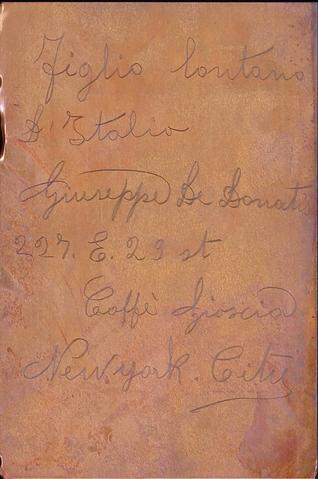 Figlio lontano
D'Italia
Giuseppe De Donati
227. E. 29 st
Caffè Gioscia
New York. City